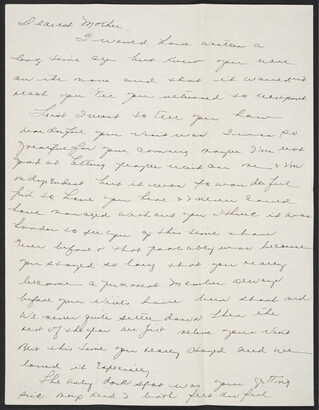 Dearest Mother,
I would have written a
long time ago but knew you were
on the move and that it wouldn't
reach you til you returned to
First I want to tell you how
wonderful your visit was I was so
grateful for your coming. maybe I'm not
good at letting people assist me & I'm
independent but it was so wonderful
just to have you here & I never could
have managed without you I think it was
harder to see you go this time than
ever before & that probably was because
you stayed so long that you really
became a permanent member. Always
before your visits have been short and
We never quite settle down then the
rest of the year we just relive your visit
But this time you really stayed and we
loved it Especially
The only dark spot was your getting
sick Max and I both feel awful